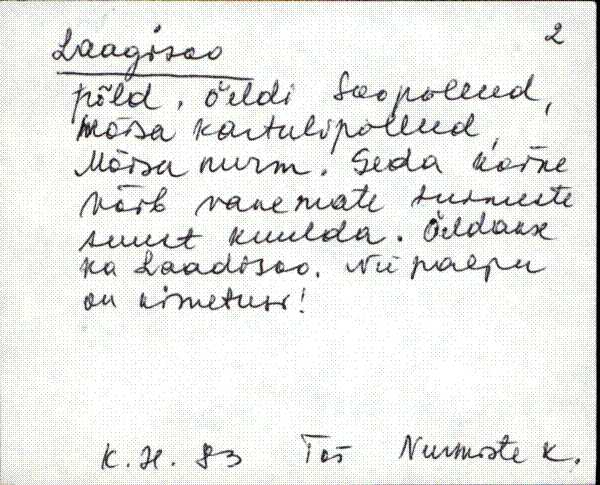 2
Laagisoo
põld. Öeldi Soopõllud,
Mõisa kartulipõllud,
Mõisa nurm. Seda kõike
võib vanemate suust
suust kuulda. Öeldakse
ka Laadisoo. Nii palju
on nimetusi!
K. H. 83 Tõs Nurmiste k.